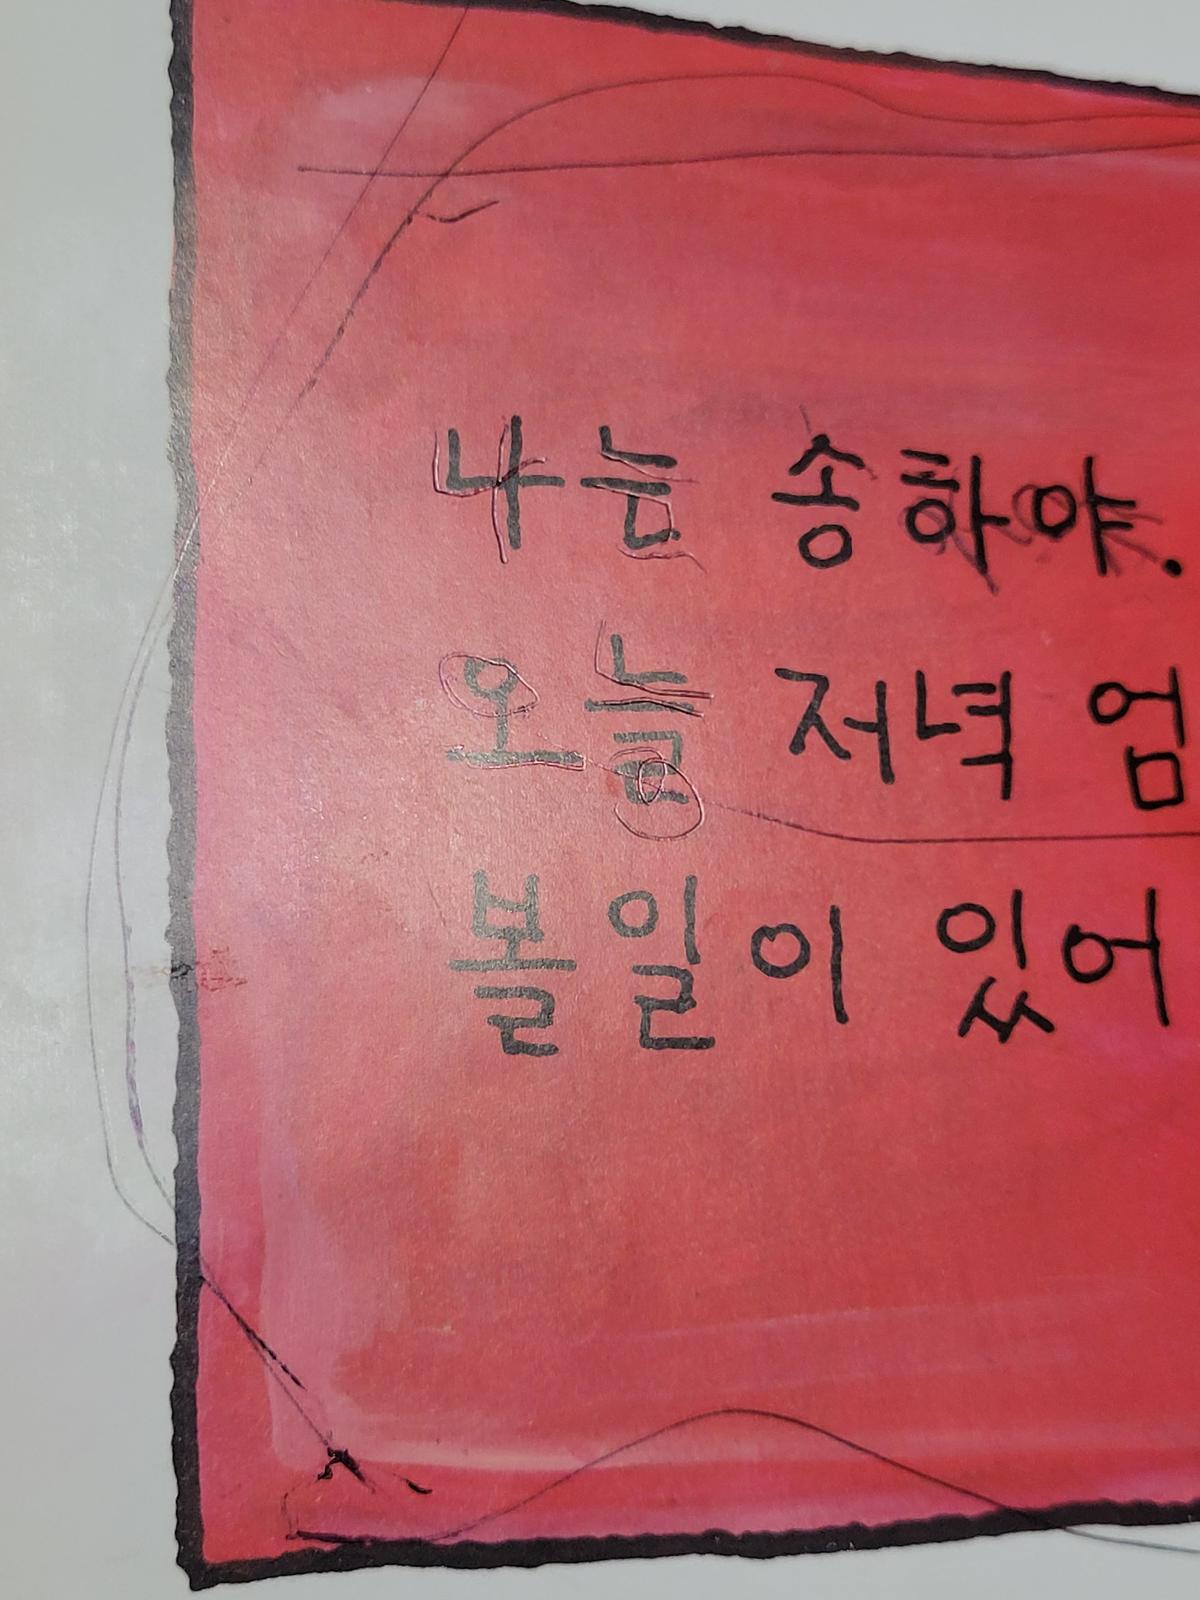 나는 송하야.
오늘 저녁 엄
볼일이 있어